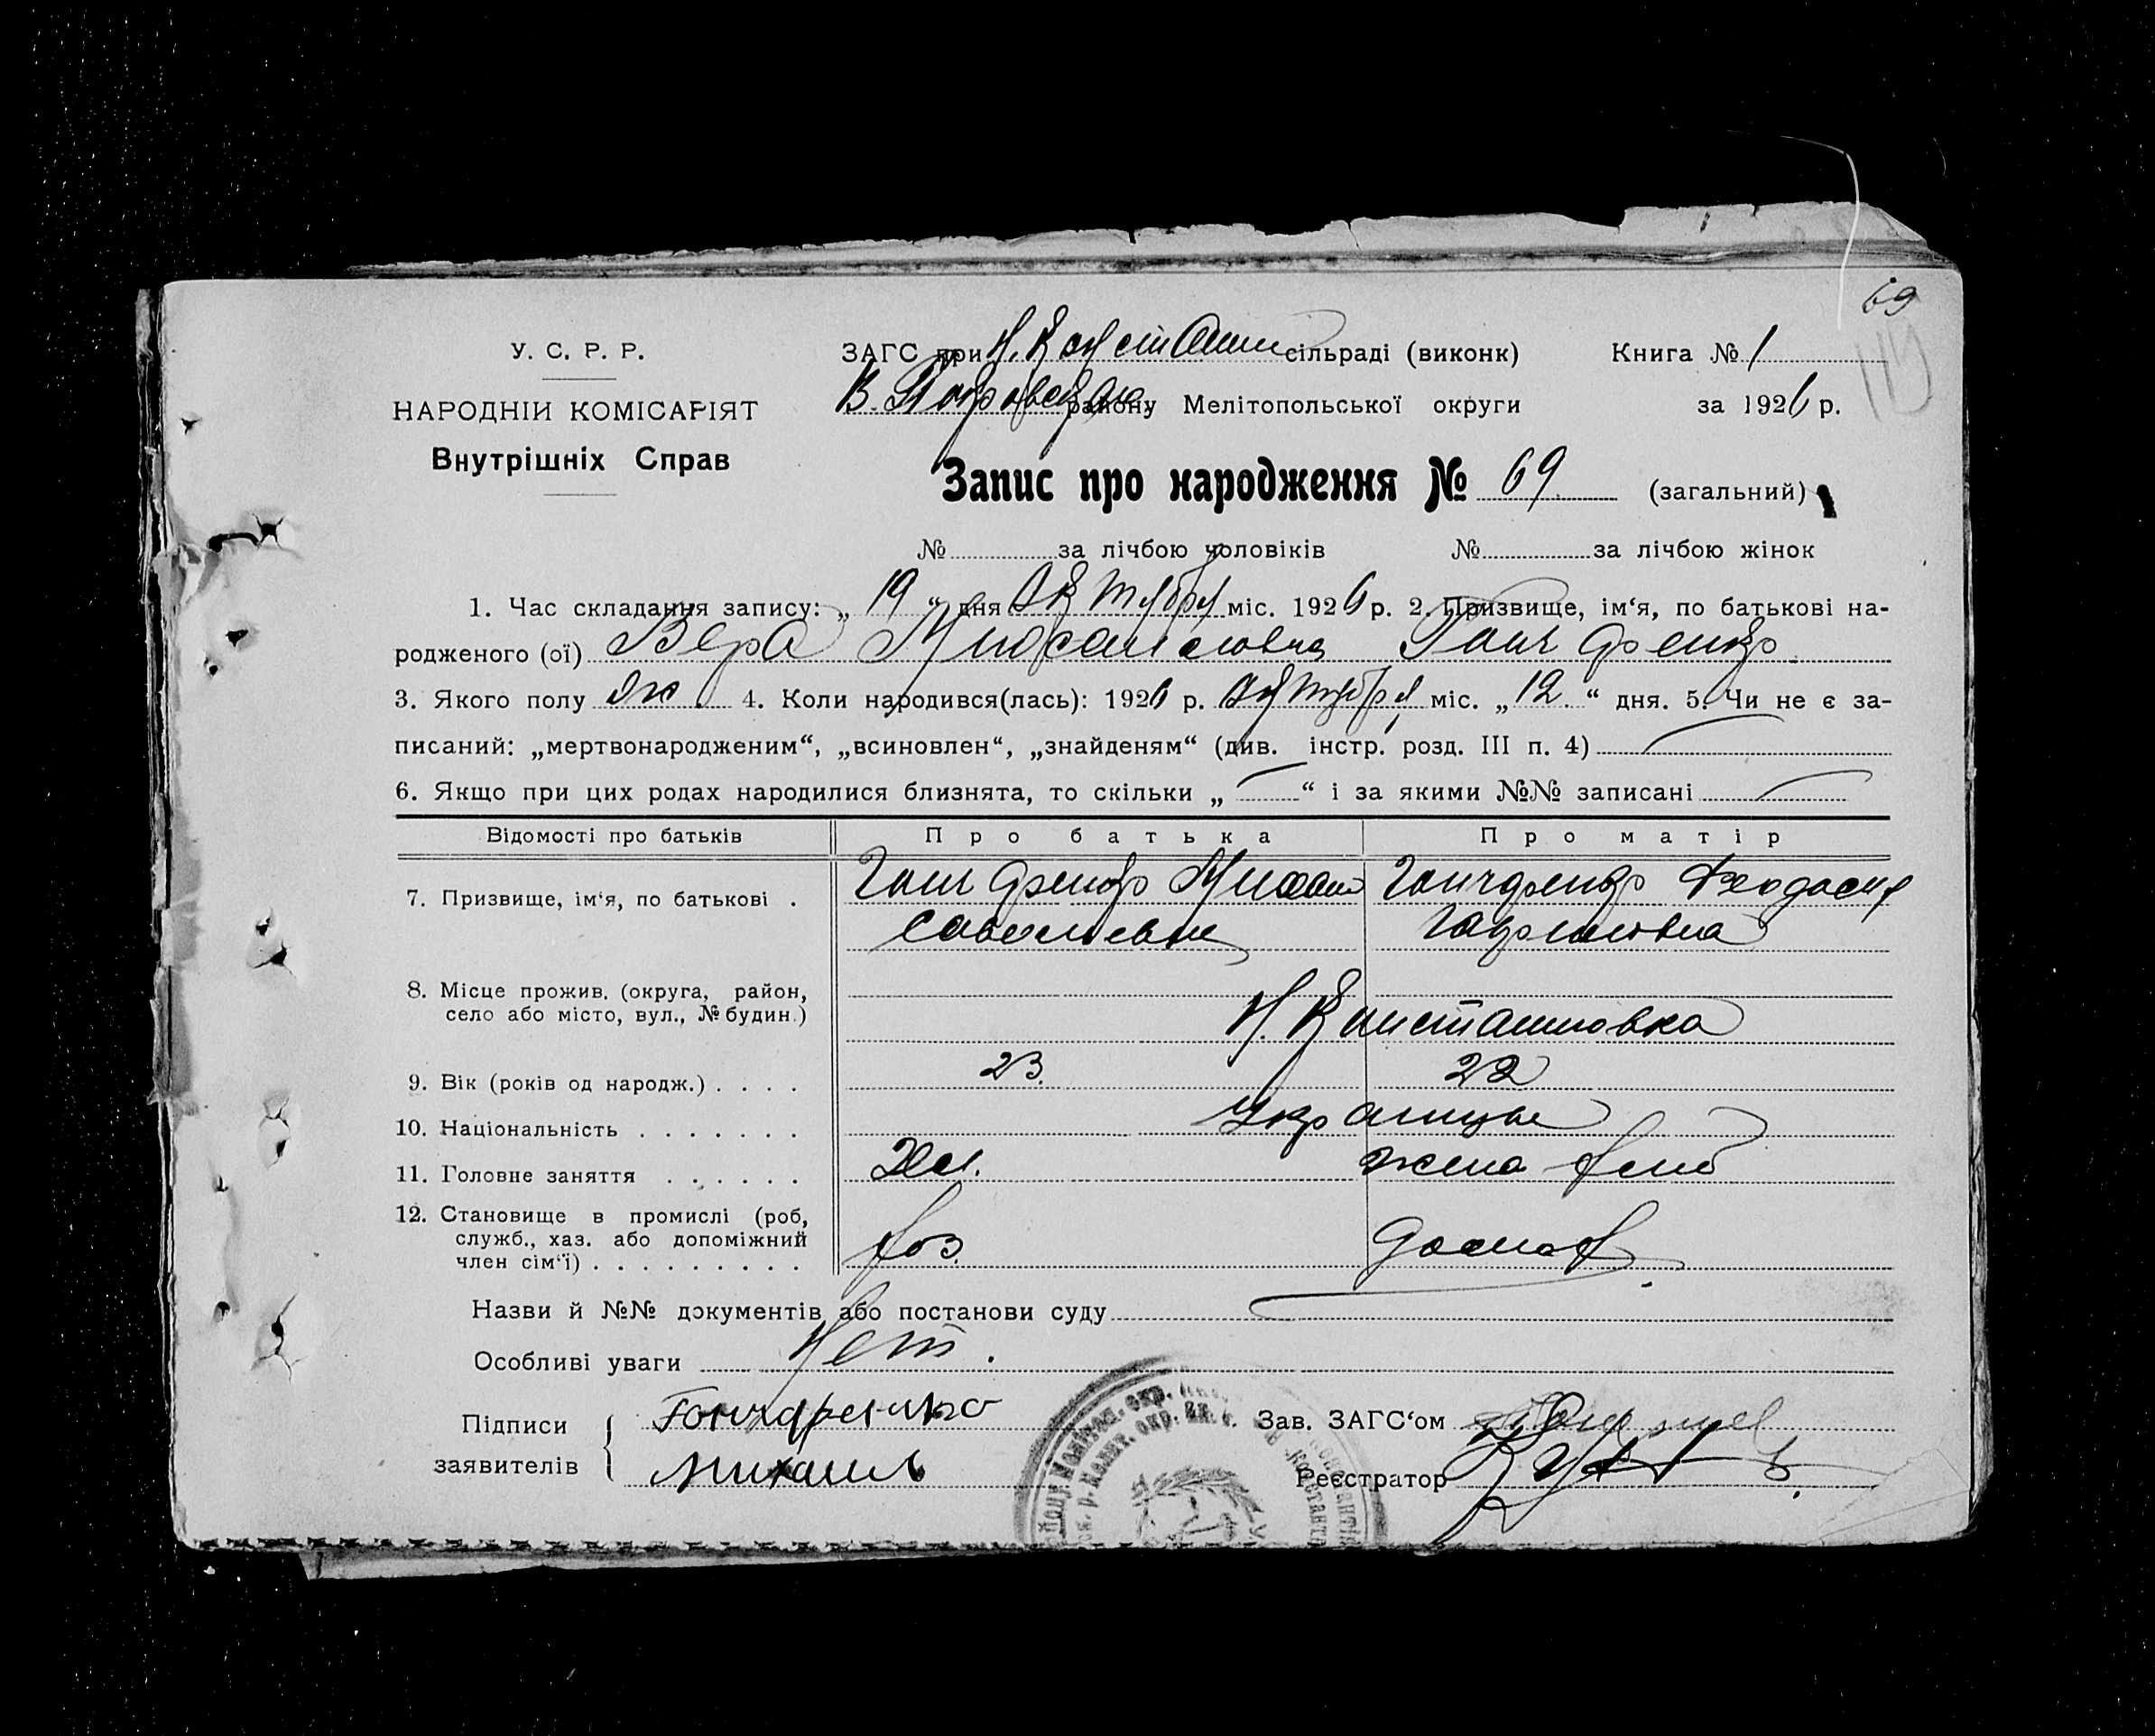 69
У. С. Р. Р.
НАРОДНІЙ КОМІСАРІЯТ
Внутрішніх Справ
ЗАГС при Н. Констант сільраді (виконк) Книга № 1
В. Покровск району Мелітопольської округи за 1926 р.
Запис про народження № 69 (загальний)
№ за лічбою чоловіків № за лічбою жінок
1. Час складання запису: „ 19 “ дня Октября міс. 1926 р. 2. Призвище, ім‘я, по батькові на-
родженого (ої) Вера Михайловна Гончаренко
3. Якого полу ж 4. Коли народився(лась): 1926 р. Октября міс. „ 12. “ дня. 5. Чи не є за-
писаний: „мертвонародженим“, „всиновлен“, „знайденям“ (див. інстр. розд. III п. 4)
6. Якщо при цих родах народилися близнята, то скільки „ — “ і за якими №№ записані —
Відомості про батьків Про батька Про матір
7. Призвище, ім‘я, по батькові . Гончаренко Михаил Гончаренко Феодосия
Савельевич Гавриловна
8. Місце прожив. (округа, район,
село або місто, вул., № будин.) Н. Константиновка
9. Вік (років од народж.) . . . . 23. 22
10. Національність . . . . . . . Украинцы
11. Головне заняття . . . . . . Хл. жена
12. Становище в промислі (роб,
служб., хаз. або допоміжний
член сім‘ї) . . . . . . . . . хоз.
Назви й №№ документів або постанови суду
Особливі уваги Нет.
Підписи Гончаренко Зав. ЗАГС‘ом
заявителів Михаиль Реєстратор